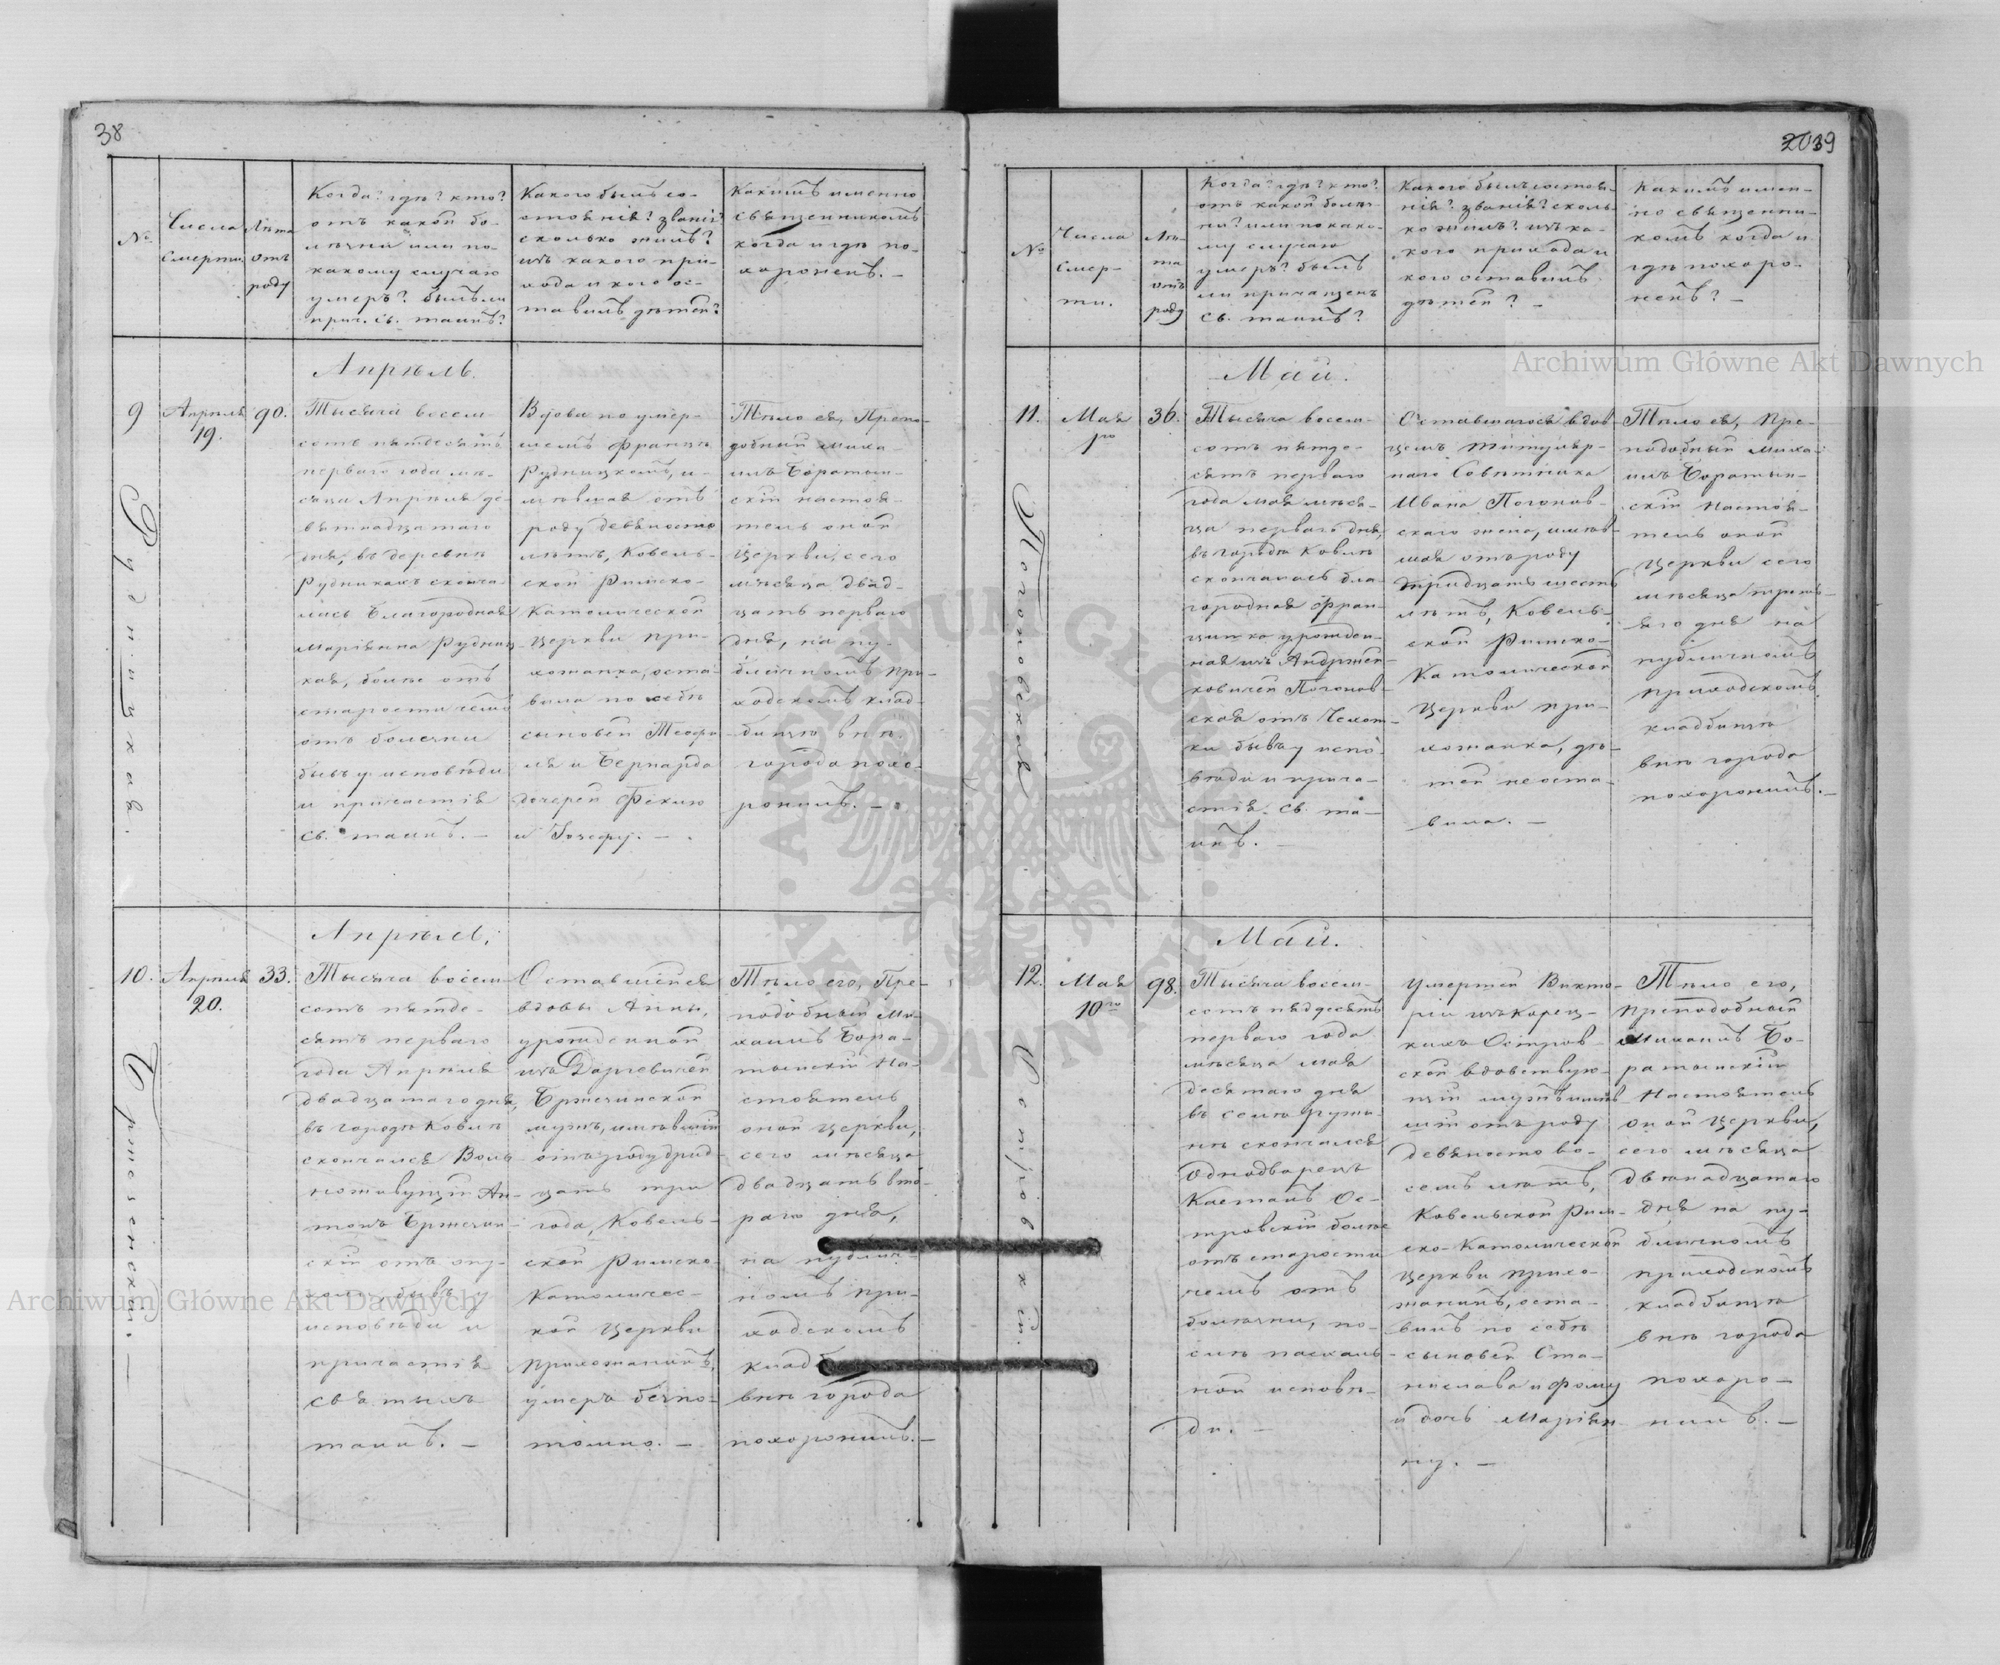 38
№
Числа
смерти
Лѣта
отъ
роду
Когда? гдѣ? кто?
отъ какой бо-
лѣзни или по
какому случаю
умеръ? былъ ли
прич. св. таинъ?
Какого былъ со-
стоянія? званія?
сколько жилъ?
изъ какого при-
хода и кого ос-
тавилъ дѣтей?
Какимъ именно
священникомъ
когда и гдѣ по-
хороненъ. —
9
Рудницкая.
Апрѣля
19.
90.
Апрѣль.
Тысяча восем-
сотъ пятьдесятъ
перваго года мѣ-
сяца Апрѣля де-
вятнадцатаго
дня, въ деревнѣ
Рудникахъ сконча-
лась Благородная
Маріянна Рудниц-
кая, болѣе отъ
старости чемъ
отъ болезни
бывъ у исповѣди
и причастія
св. таинъ. —
Вдова по умер-
шемъ Францѣ
Рудницкомъ, и-
мѣвшая отъ
роду девяносто
лѣтъ, Ковель-
ской Римско-
Католической
Церкви при-
хожанка, оста-
вила по себѣ
сыновей Теофи
ля и Бернарда
дочерей Феклю
и Іозефу. —
Тѣло ея, Препо-
добный Миха-
илъ Боратын-
скій настоя-
тель оной
Церкви, сего
мѣсяца двад-
цать перваго
дня, на пу-
бличномъ при-
ходскомъ клад-
бищѣ внѣ
города похо-
ронилъ. —
10.
Бржезинскій. —
Апрѣля
20.
33.
Апрѣль,
Тысяча восем-
сотъ пятьде-
сятъ перваго
года Апрѣля
двадцатаго дня,
въ городѣ Ковлѣ
скончался Воль-
ноживущій Ан-
тонъ Бржезин-
скій отъ опу-
холи, бывъ у
исповѣди и
причастія
святыхъ
таинъ. —
Оставшійся
вдовы Анны,
урожденной
изъ Даргевичей
Бржезинской
мужъ, имѣвшій
отъ роду трид-
цать три
года, Ковель-
ской Римско-
Католичес-
кой Церкви
прихожанинъ,
умеръ безпо-
томно. —
Тѣло его, Пре-
подобный Ми-
хаилъ Бора-
тынскій На-
стоятель
оной Церкви,
сего мѣсяца
двадцать вто-
раго дня,
на публич-
номъ при-
ходскомъ
клад
внѣ города
похоронилъ. —
2039
№
Числа
смер-
ти.
Лѣ-
та
отъ
роду
Когда? гдѣ? кто?
отъ какой болѣз-
ни? или по како-
му случаю
умеръ? былъ
ли причащенъ
св. таинъ?
Какого былъ состоя-
нія? званія? сколь-
ко жилъ? изъ ка-
кого прихода и
кого оставилъ
дѣтей? —
Какимъ имен-
но священни-
комъ когда и
гдѣ похоро-
ненъ? —
11.
Погоновская
Мая
1го
36.
Май.
Тысяча восем-
сотъ пятьде-
сятъ перваго
года мая мѣся-
ца перваго дня,
въ городѣ Ковлѣ
скончалась бла-
городная Фран-
цишка урожден-
ная изъ Андржей-
ковичей Погонов-
ская отъ Чехот-
ки бывъ у испо-
вѣди и прича-
стія св. та-
инъ. —
Оставшагося вдов
цемъ Титуляр-
наго Совѣтника
Ивана Погонов-
скаго жена, имѣв-
шая отъ роду
тридцать шесть
лѣтъ, Ковель-
ской Римско-
Католической
Церкви при-
хожанка, дѣ-
тей не оста-
вила. —
Тѣло ея, Пре-
подобный Миха-
илъ Боратын-
скій Настоя-
тель оной
Церкви сего
мѣсяца треть-
яго дня на
публичномъ
приходскомъ
кладбищѣ
внѣ города
похоронилъ. —
12.
Островскій.
Мая
10го
98.
Май.
Тысяча восем-
сотъ пядесятъ
перваго года
мѣсяца мая
десятаго дня
въ селѣ Ружи-
нѣ скончался
Однодворецъ
Каетанъ Ос-
тровскій болѣе
отъ старости
чемъ отъ
болѣзни, по-
слѣ пасхаль-
ной исповѣ-
ди. —
Умершей Викто-
ріи изъ Корец-
кихъ Островской
ской вдовствую-
щій мужъ имѣв-
шій отъ роду
девяносто во-
семь лѣтъ,
Ковельской Рим-
ско-Католической
Церкви прихо-
жанинъ, оста-
вилъ по себѣ
сыновей Ста-
нислава и Фому
и дочь Маріян-
ну. —
Тѣло его,
Преподобный
Михаилъ Бо-
ратынскій
Настоятель
оной Церкви,
сего мѣсяца
двѣнадцатаго
дня на пу-
бличномъ
приходскомъ
кладбищѣ
внѣ города
похоро-
нилъ. —
Archiwum Główne Akt Dawnych
Archiwum Główne Akt Dawnych
ARCHIWUM GŁÓWNE AKT DAWNYCH